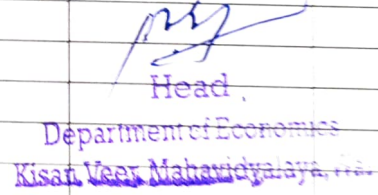 Head
Department of Economics
Kisan Veer Mahavidyalaya,